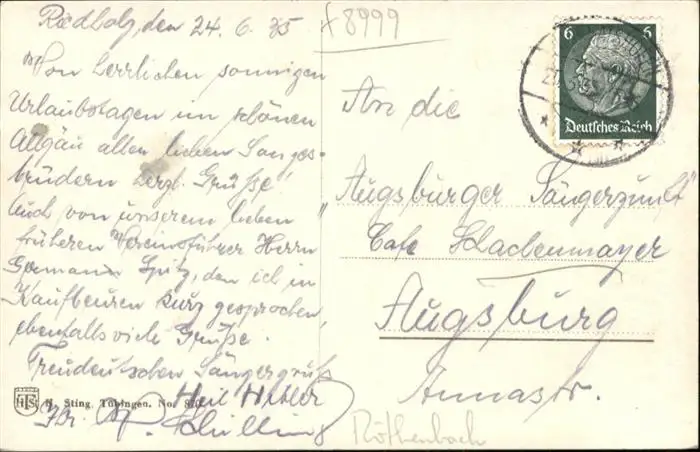 Riedholz, den 24. 6. 35
Von herrlichen sonnigen
Urlaubstagen im schönen
Allgäu allen lieben Sanges-
brüdern herzl. Grüße!
Auch von unserem lieben
früheren Vereinsführer Herrn
Germann Spitz, den ich in
Kaufbeuren kurz gesprochen,
ebenfalls viele Grüße.
Treudeutschen Sängergruß
Heil Hitler
Ihr Schilling
H. Sting, Tübingen. No.
HST
x8999
6 6
Deutsches Reich
An die
"Augsburger Sängerzunft"
Cafe Schachenmayer
Augsburg
Annastr.
Röthenbach